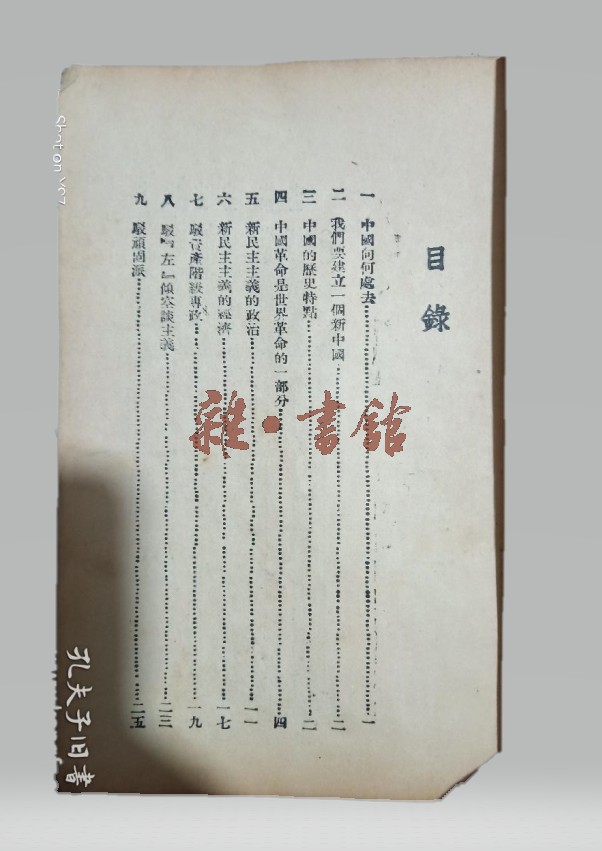 目錄
一 中國向何處去……一
二 我們要建立一個新中國……二
三 中國的歷史特點……二
四 中國革命是世界革命的一部分……四
五 新民主主義的政治……一一
六 新民主主義的經濟……一七
七 駁資產階級專政……一九
八 駁『左』傾空談主義……二三
九 駁頑固派……二五
雜·書館
Shot on
孔夫子旧書